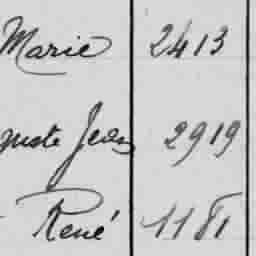 Marie 2413
guste Jean 2919
René 1181